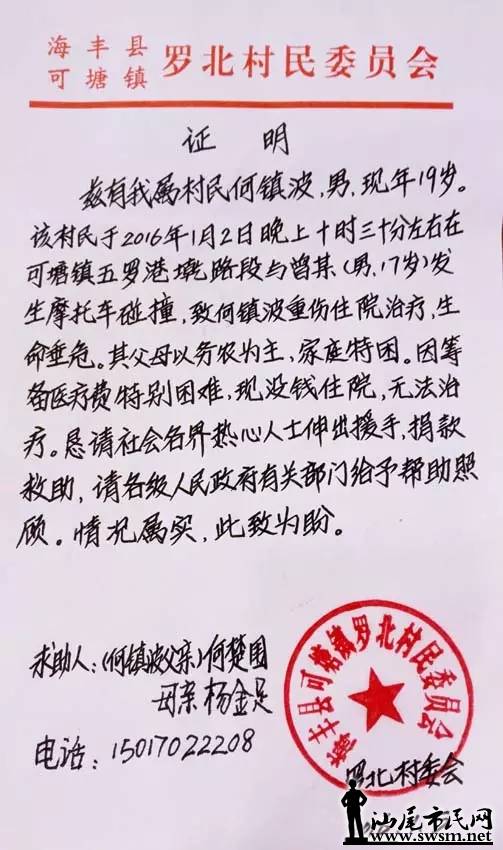 海丰县
可塘镇 罗北村民委员会
证 明
兹有我属村民何镇波,男,现年19岁。
该村民于2016年1月2日晚上十时三十分左右在
可塘镇五罗港墘路段与曾某(男,17岁)发
生摩托车碰撞,致何镇波重伤住院治疗,生
命垂危。其父母以务农为主,家庭特困。因筹
备医疗费特别困难,现没钱住院,无法治
疗。恳请社会各界热心人士伸出援手,捐款
救助,请各级人民政府有关部门给予帮助照
顾。情况属实,此致为盼。
求助人:(何镇波父亲)何楚国
母亲杨金足
电话:15017022208
海丰县可塘镇罗北村民委员会
罗北村委会
汕尾市民网
www.swsm.net